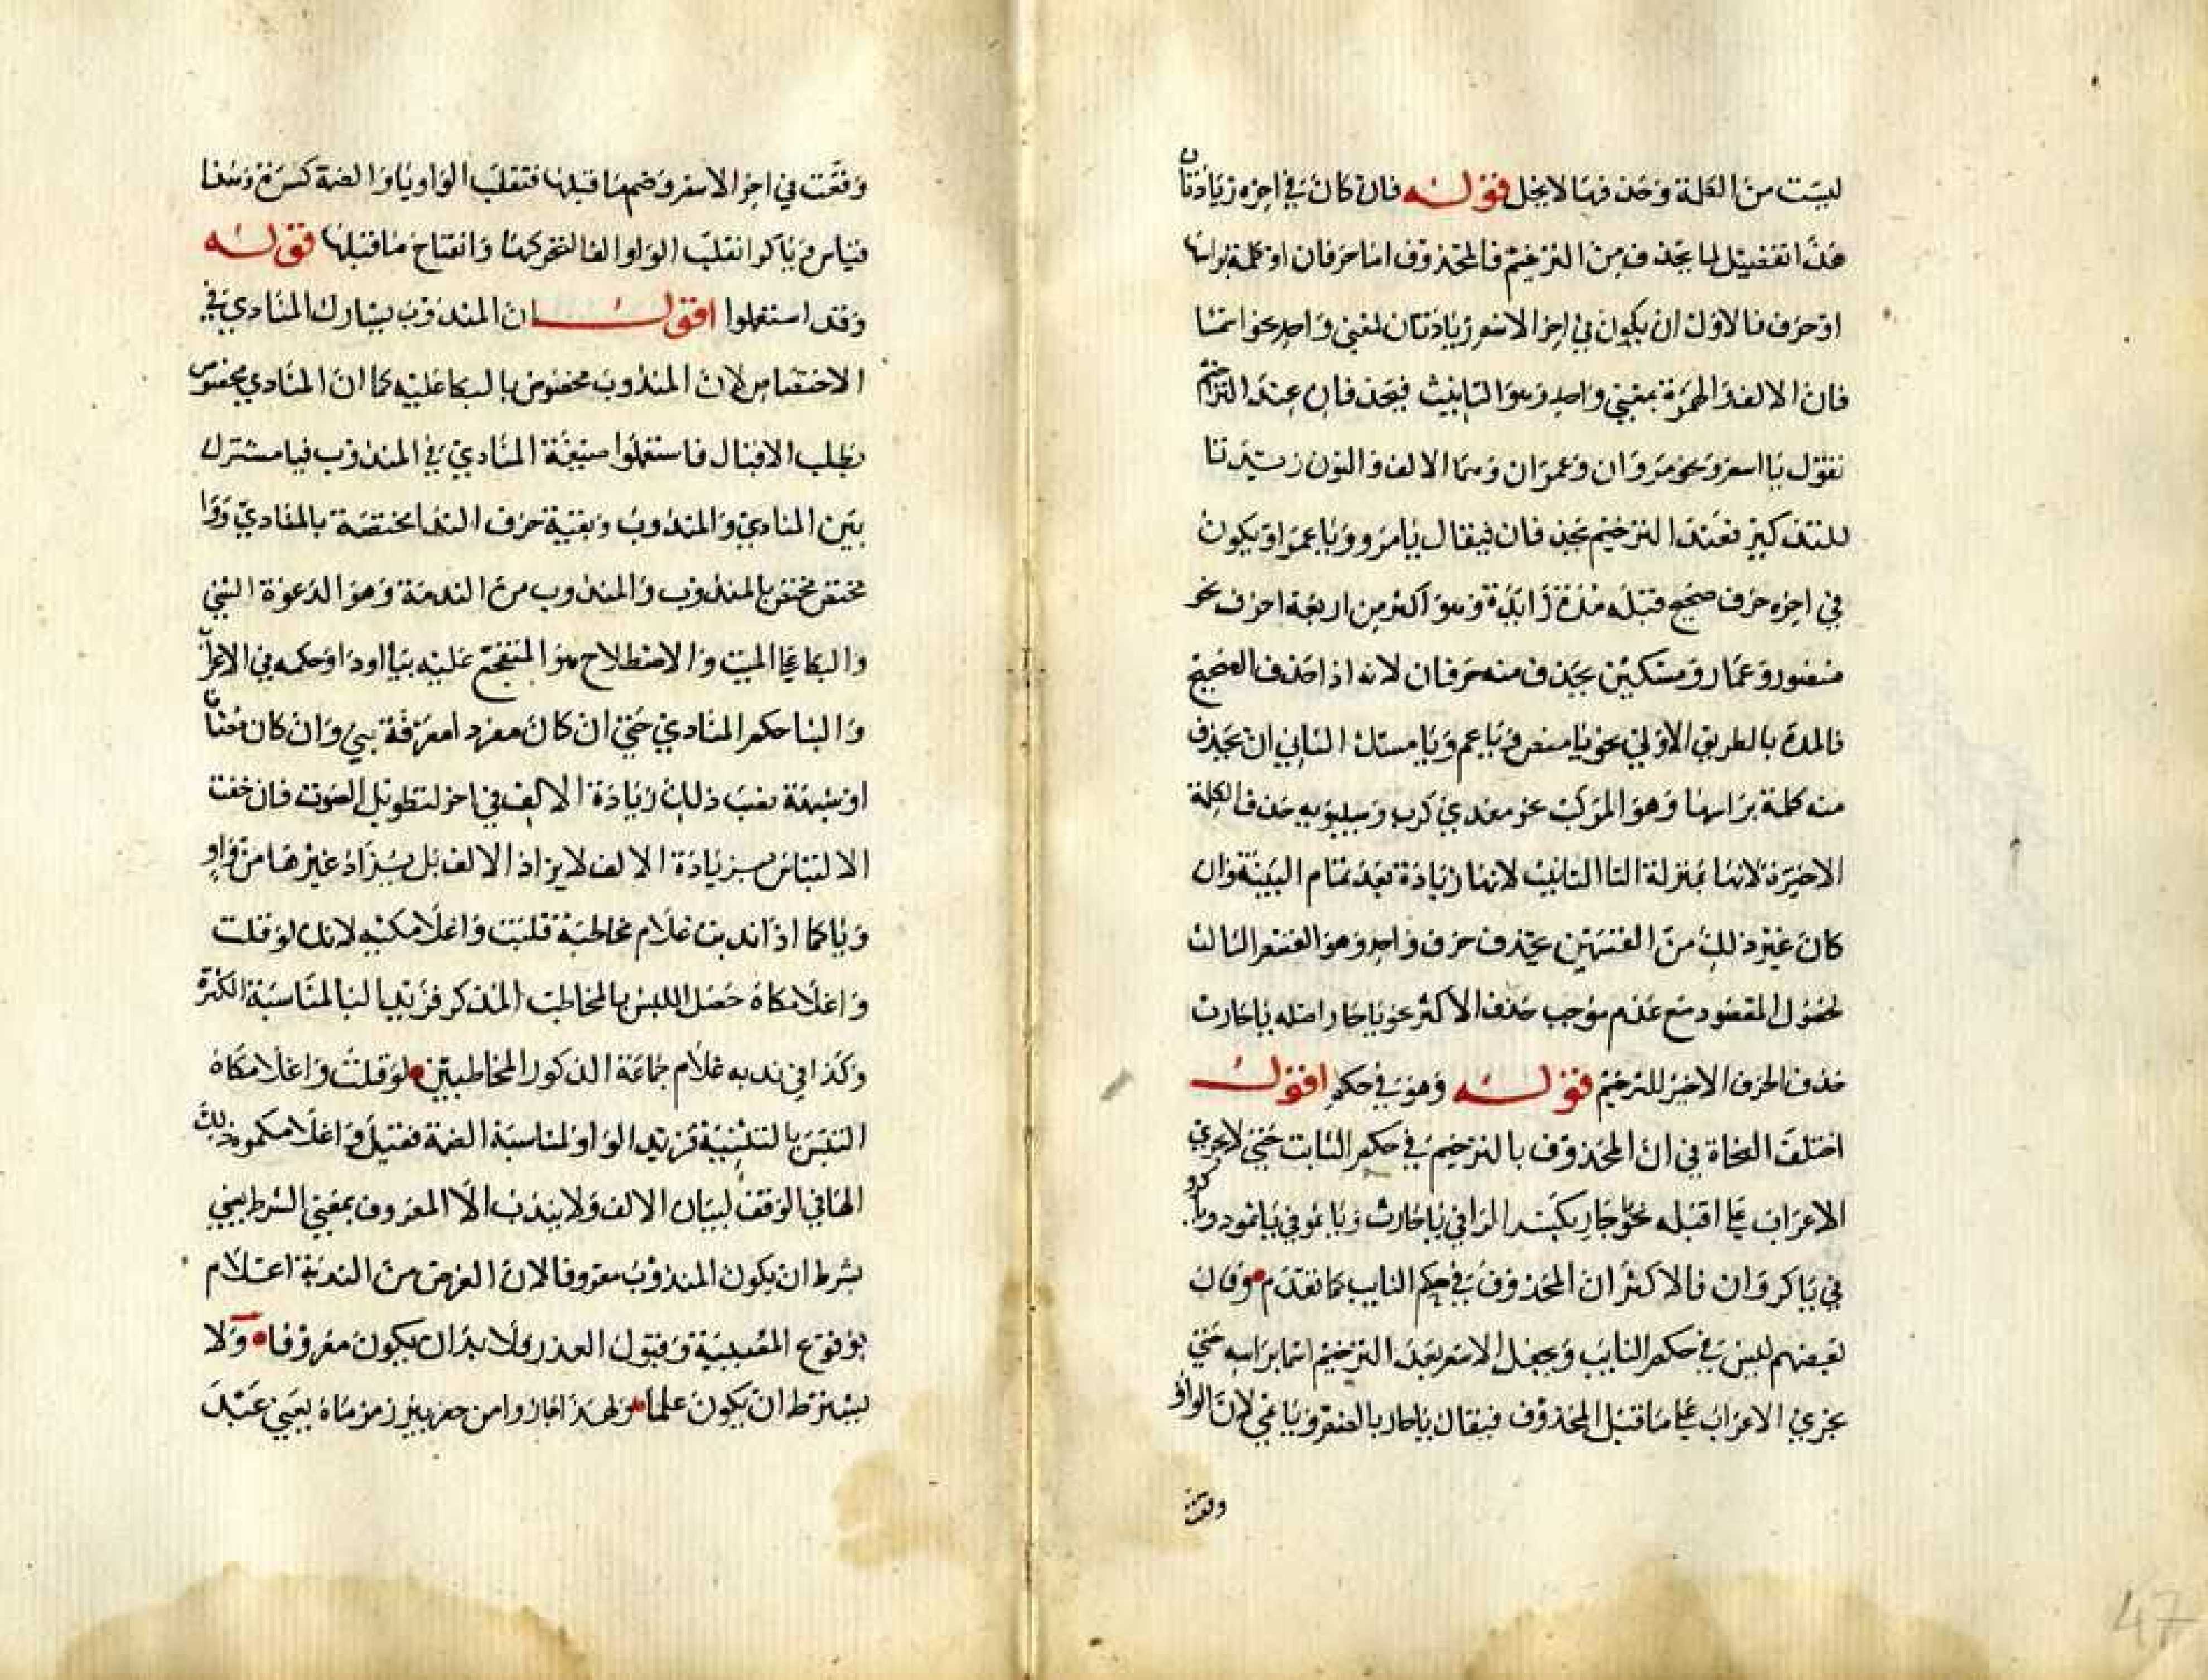 ليست من الكلمة وحذفها لا يخل قوله فان كان في اخره زيادتان
هذا تفضيل لما يحذف من الترخيم فالمحذوف اما حرفان او كلمة براسها
او حرف فالاول ان يكون في اخر الاسم زيادتان لمعنى واحد نحو اسما
فان الالف والهمزة بمعنى واحد وهو التانيث فيحذفان عند الترخيم
نقول يا اسم ونحو مروان وعمران وهما الالف والنون زيدتا
للتذكير فعند الترخيم تحذفان فيقال يا مرو ويا عمر او يكون
في اخره حرف صحيح قبله مدة زايدة وهو اكثر من اربعة احرف نحو
منصور وعمار ومسكين يحذف منه حرفان لانه اذا حذف الصحيح
فالمدة بالطريق الاولى نحو يا منص ويا عم ويا مسك الثاني ان يحذف
منه كلمة براسها وهو المركب نحو معدي كرب وسيبويه حذف الكلمة
الاخيرة لانها بمنزلة التا التانيث لانها زيادة بعد تمام البينة وان
كان غير ذلك من القسمين يحذف حرف واحد وهو القسم الثالث
لحصول المقصود مع عدم موجب حذف الاكثر نحو يا حار اصله يا حارث
حذف الحرف الاخير للترخيم قوله وهو في حكم اقول
اختلف النحاة في ان المحذوف بالترخيم في حكم الثابت حتى لا يجري
الاعراب على ما قبله نحو يا حار بكسر الرا في يا حارث ويا ثمو في يا ثمود ويا كرو
في يا كروان فالاكثر ان المحذوف في حكم الثابت كما تقدم وقال
بعضهم ليس في حكم الثابت ويجعل الاسم بعد الترخيم اسما براسه حتى
يجري الاعراب على ما قبل المحذوف فيقال يا حار بالضم ويا ثمي لان الواو
وقعت
وقعت في اخر الاسم وضم ما قبلها فتقلب الواو يا والضمة كسرة وهذا
قياس ويا كرا تقلب الواو الفا لتحركها وانفتاح ما قبلها قوله
وقد استعملوا اقول ان المندوب يشارك المنادي في
الاختصاص لان المندوب مخصوص بالبكا عليه كما ان المنادي مخصوص
بطلب الاقبال فاستعملوا صيغة المنادي في المندوب فيا مشترك
بين المنادي والمندوب وبقية حرف الندا مختصة بالمنادي ووا
مختص مختص بالمندوب والمندوب من الندبة وهو الدعوة التي
والبكا على الميت والاصطلاح هو المتفجع عليه بيا او وا وحكمه في الاعراب
والبنا حكم المنادي حتى ان كان مفرد امعرفة بني وان كان مضافا
او شبهه نصب ذلك زيادة الالف في اخر لتطويل الصوت فان خفت
الالتباس بزيادة الالف لا يزاد الالف بل يزاد غيرها من واو
ويا كما اذا ندبت غلام مخاطبة قلت واغلامكيه لانك لو قلت
واغلامكاه حصل اللبس بالمخاطب المذكر فزيد اليا لمناسبة الكسرة
وكذا في ندبه غلام جماعة الذكور المخاطبين لو قلت واغلامكاه
التبس بالتثنية فزيد الواو لمناسبة الضمة فقيل واغلامكموه ذلك
الها في الوقف لبيان الالف ولا يندب الا المعروف بمعنى الشرط يعني
بشرط ان يكون المندوب معروفا لان الغرض من الندبة اعلام
بوقوع المصيبة وقبول العذر فلا بد ان يكون معروفا ولا
يشترط ان يكون علما ولهذا جاز وامن حفر بير زمزماه يعني عبد
47